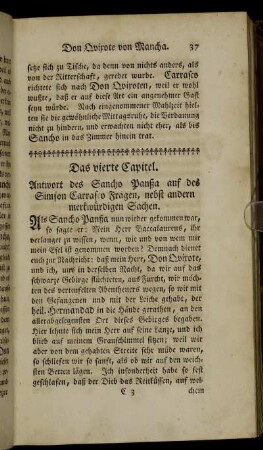 Don Qvixote von Mancha. 37
setzte sich zu Tische, da denn von nichts anders, als
von der Ritterschaft, geredet wurde. Carrasco
richtete sich nach Don Qvixoten, weil er wohl
wußte, daß er auf diese Art ein angenehmer Gast
seyn würde. Nach eingenommener Mahlzeit hiel-
ten sie die gewöhnliche Mittagsruhe, die Verdauung
nicht zu hindern, und erwachten nicht eher, als bis
Sancho in das Zimmer hinein trat.
Das vierte Capitel.
Antwort des Sancho Panßa auf des
Simson Carrasco Fragen, nebst andern
merkwürdigen Sachen.
Als Sancho Panßa nun wieder gekommen war,
so sagte er: Mein Herr Baccalaureus, ihr
verlanget zu wissen, wenn, wie und von wem mir
mein Esel ist genommen worden? Demnach dienet
euch zur Nachricht: daß mein Herr, Don Qvixote,
und ich, uns in derselben Nacht, da wir auf das
schwarze Gebirge flüchteten, aus Furcht, wir möch-
ten des verteufelten Abentheuers wegen, so wir mit
den Gefangenen und mit der Leiche gehabt, der
heil. Hermandad in die Hände gerathen, an den
allerabgelegensten Ort dieses Gebirges begaben.
Hier lehnte sich mein Herr auf seine Lanze, und ich
blieb auf meinem Grauschimmel sitzen; weil wir
aber von dem gehabten Streite sehr müde waren,
so schliefen wir so sanft, als ob wir auf den weich-
sten Betten lägen. Ich insonderheit habe so fest
geschlafen, daß der Dieb das Reitküssen, auf wel-
C 3 chem